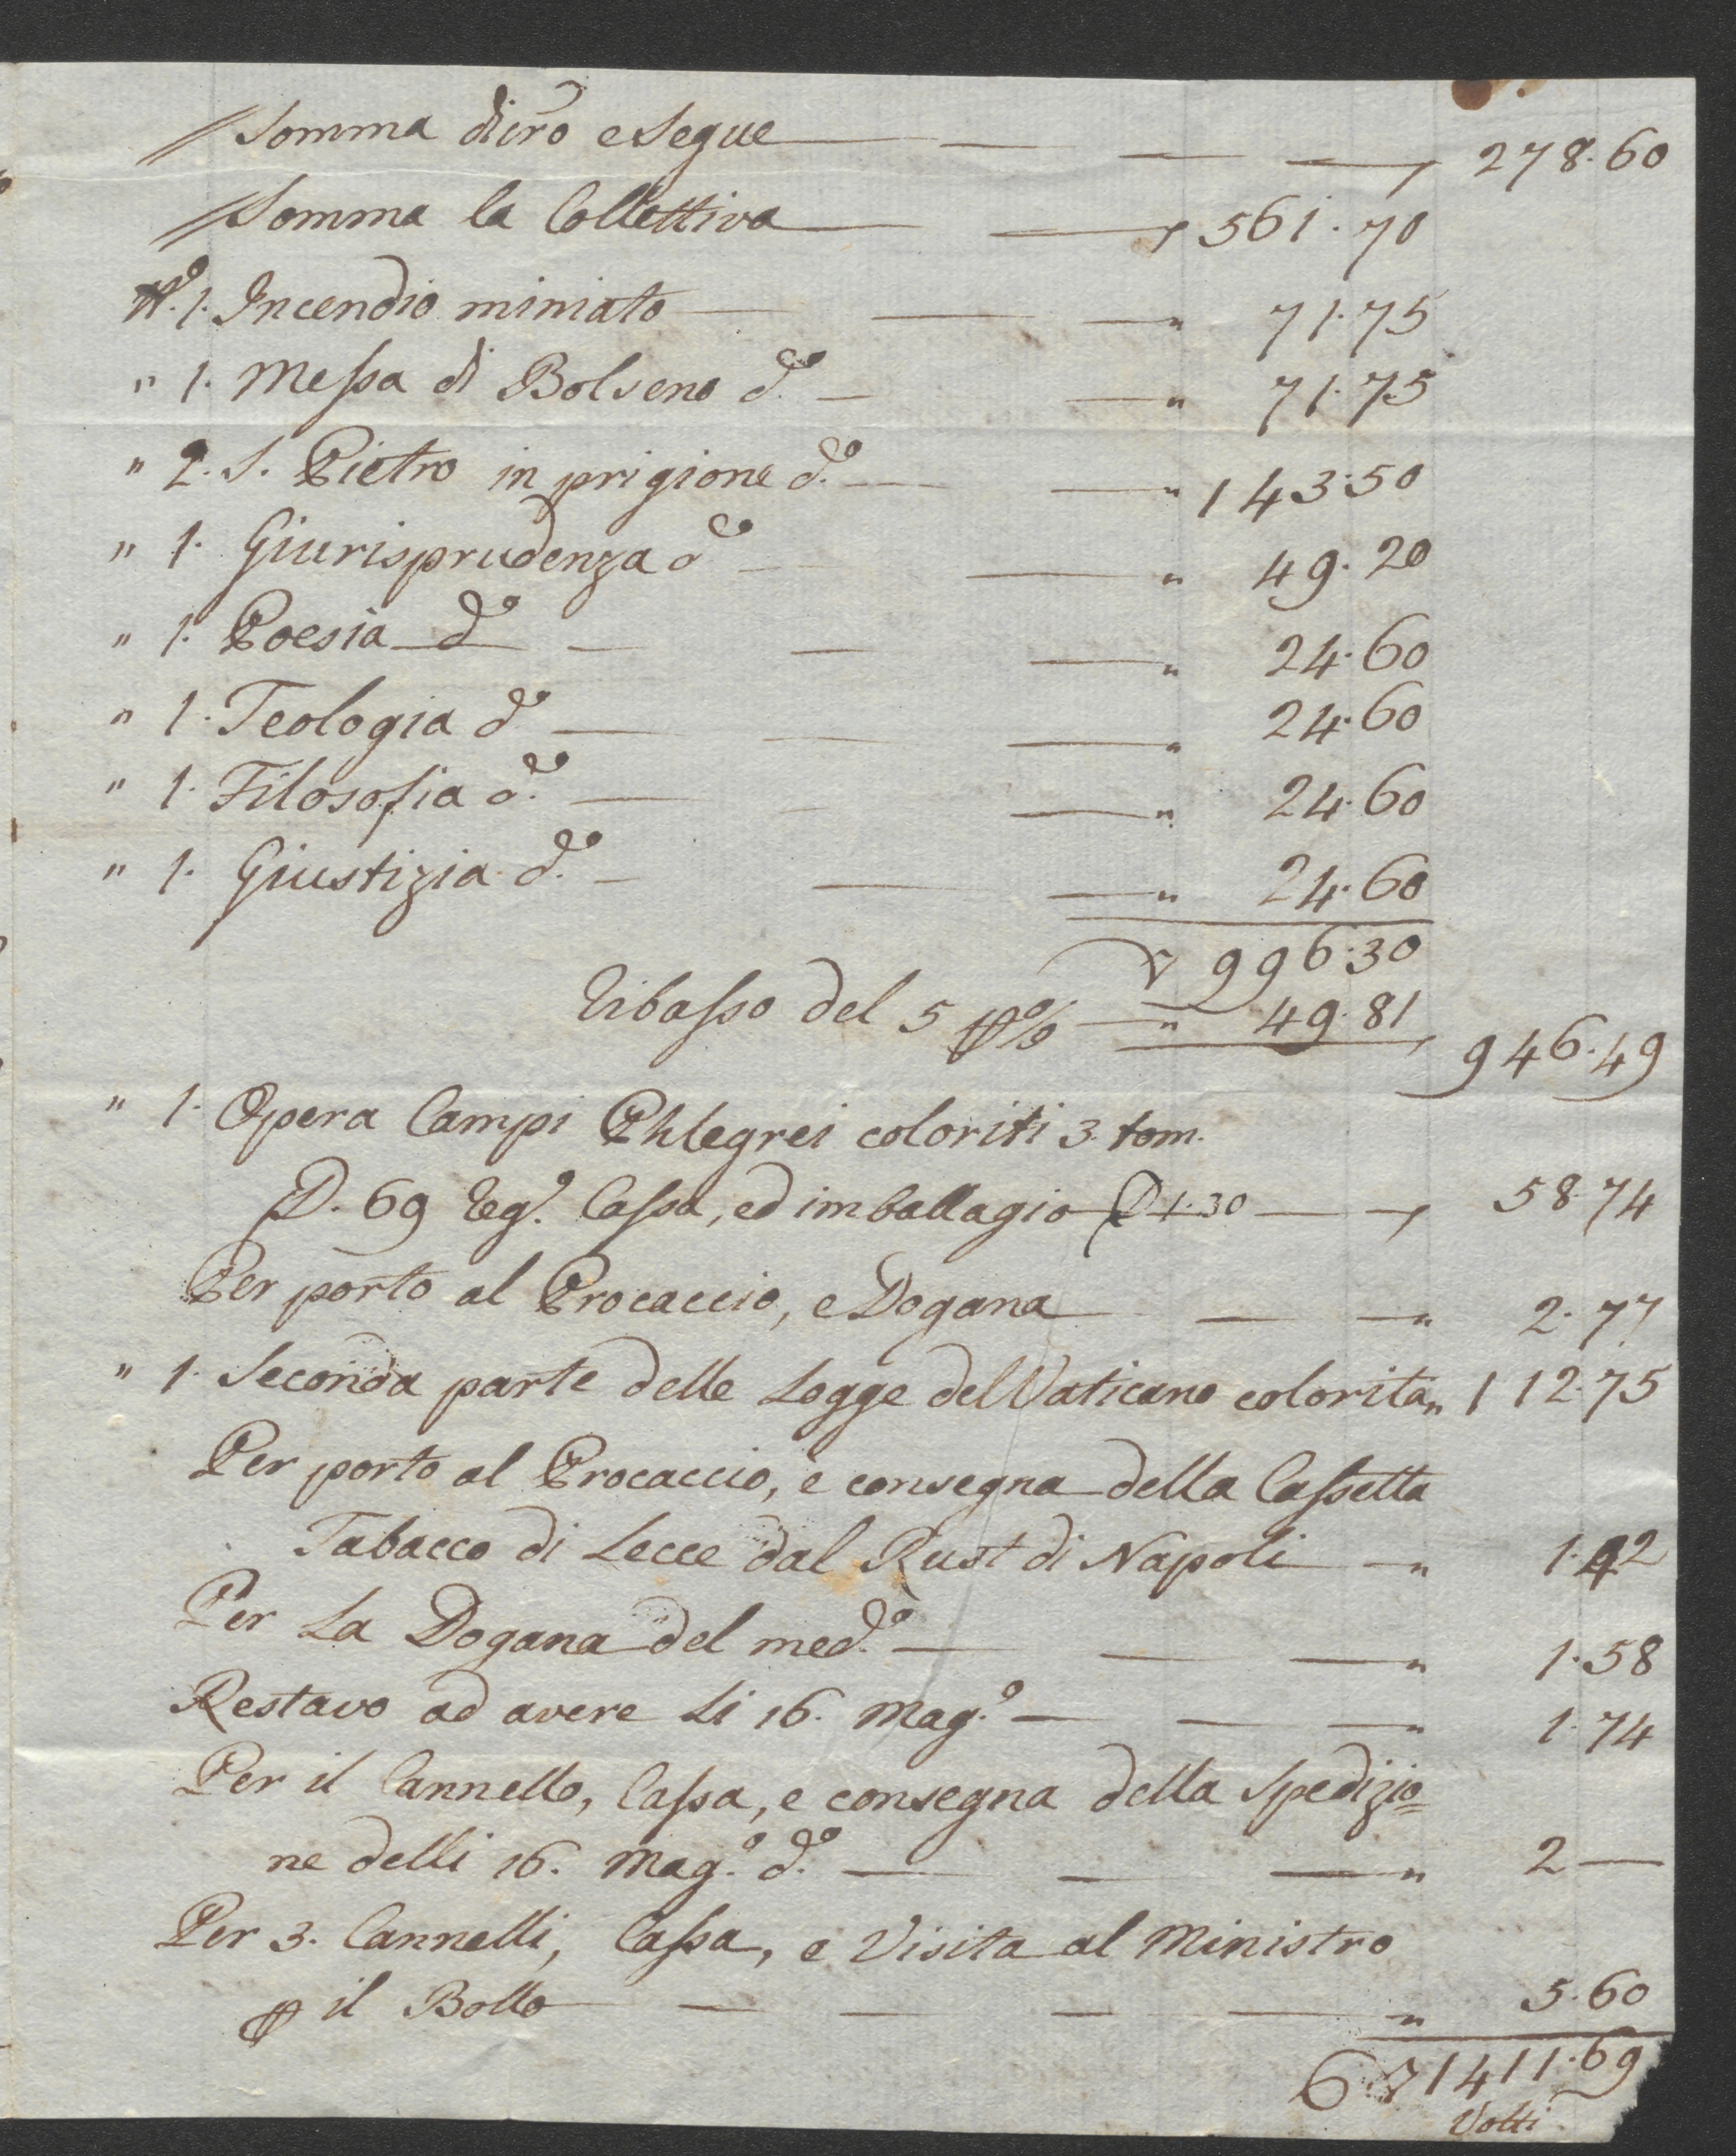 Somma dicrõ e Segue 278.60
Somma la Collettiva 561.70
N.º 1. Incendio miniato " 71.75
" 1. Messa di Bolseno d.º " 71.75
" 2. S. Pietro in prigione d.º " 143.50
" 1. Giurisprudenza dº " 49.20
" 1. Poesia dº " 24.60
" 1. Teologia dº " 24.60
" 1. Filosofia d.º " 24.60
" 1. Giustizia d.º " 24.60
996.30
Ribasso del 5 p% " 49.81 946.49
" 1. Opera Campi Phlegrei coloriti 3. tom.
D. 69 Reg.º Cassa, ed imballagio D 1.30 58.74
Per porto al Procaccio, e Dogana " 2.77
" 1. Seconda parte delle Logge del Vaticano colorita " 112.75
Per porto al Procaccio, e consegna della Cassetta
Tabacco di Lecce dal Rust di Napoli " 1.42
Per La Dogana del med.º " 1.58
Restavo ad avere Li 16. Mag.º " 1.74
Per il Cannello, Cassa, e consegna della Spedizio=
ne delli 16. Mag.º d.º " 2 —
Per 3. Cannelli, Cassa, e Visita al Ministro
p il Bollo " 5.60
1411.69
Volti